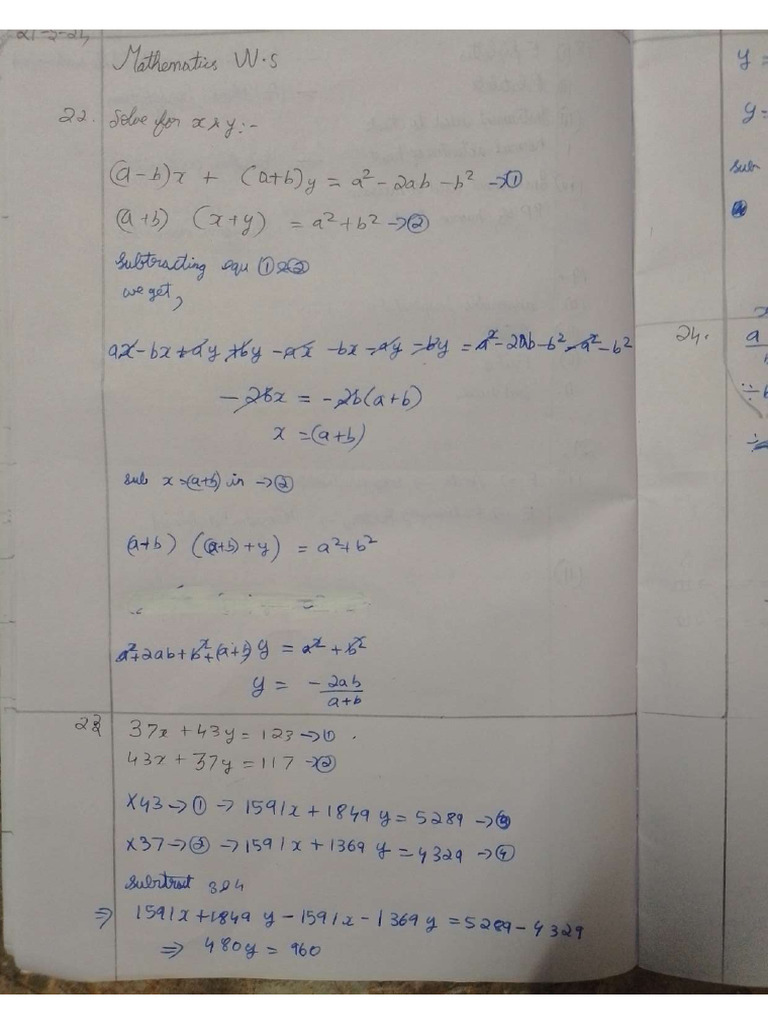 21-5-24
Mathematics W.S
22. Solve for x & y :-
(a-b)x + (a+b)y = a² - 2ab - b² → ①
(a+b) (x+y) = a² + b² → ②
Subtracting equ ① & ②
we get,
ax - bx + ay + by - ax - bx - ay - by = a² - 2ab - b² - a² - b²
-2bx = -2b(a+b)
x = (a+b)
sub x = (a+b) in → ②
(a+b) ((a+b) + y) = a² + b²
a² + 2ab + b² + (a+b) y = a² + b²
y = - 2ab / a+b
23 37x + 43y = 123 → ①
43x + 37y = 117 → ②
×43 → ① → 1591x + 1849 y = 5289 → ③
×37 → ② → 1591x + 1369 y = 4329 → ④
Subtract 3 & 4
⇒ 1591x + 1849 y - 1591x - 1369 y = 5289 - 4329
⇒ 480y = 960
y =
y =
sub
24. a
÷